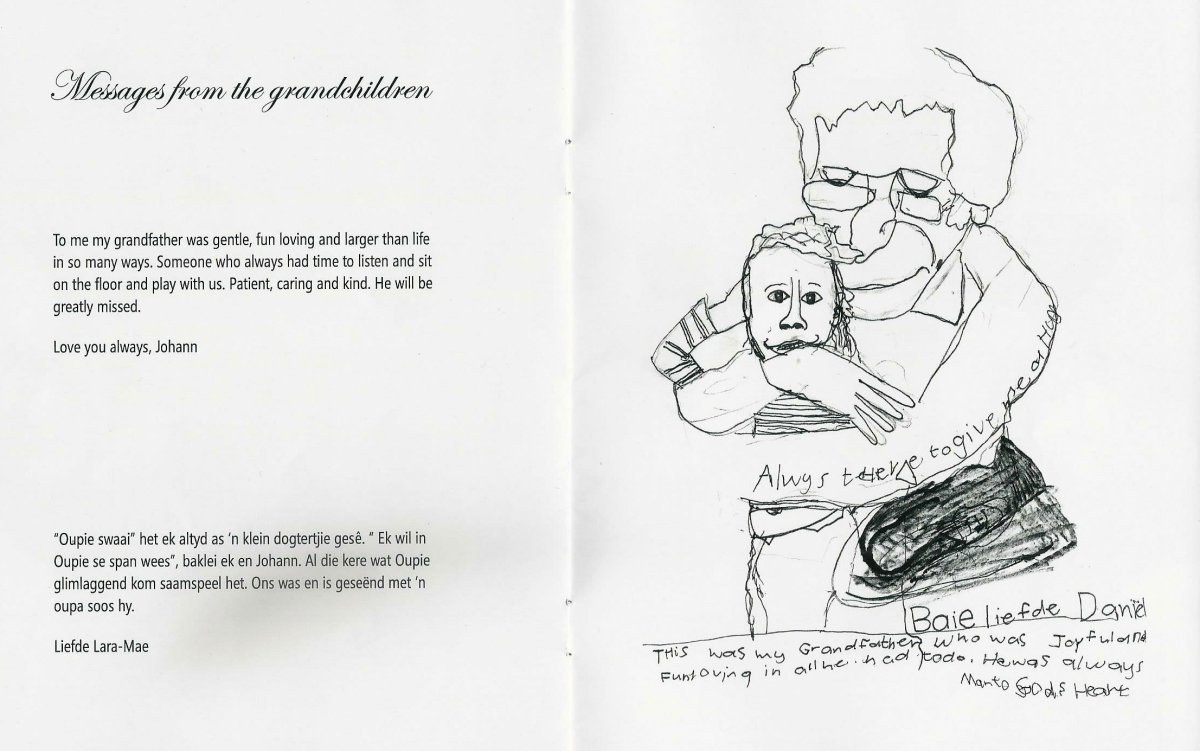 Messages from the grandchildren
To me my grandfather was gentle, fun loving and larger than life
in so many ways. Someone who always had time to listen and sit
on the floor and play with us. Patient, caring and kind. He will be
greatly missed.
Love you always, Johann
“Oupie swaai” het ek altyd as ‘n klein dogtertjie gesê. “ Ek wil in
Oupie se span wees”, baklei ek en Johann. Al die kere wat Oupie
glimlaggend kom saamspeel het. Ons was en is geseënd met ‘n
oupa soos hy.
Liefde Lara-Mae
Alwys there to give me a Huge
Baie liefde Daniël
THis was my Grandfather who was Joyfuland
Funloving in all he had todo. He was always
Manto GODS Heart